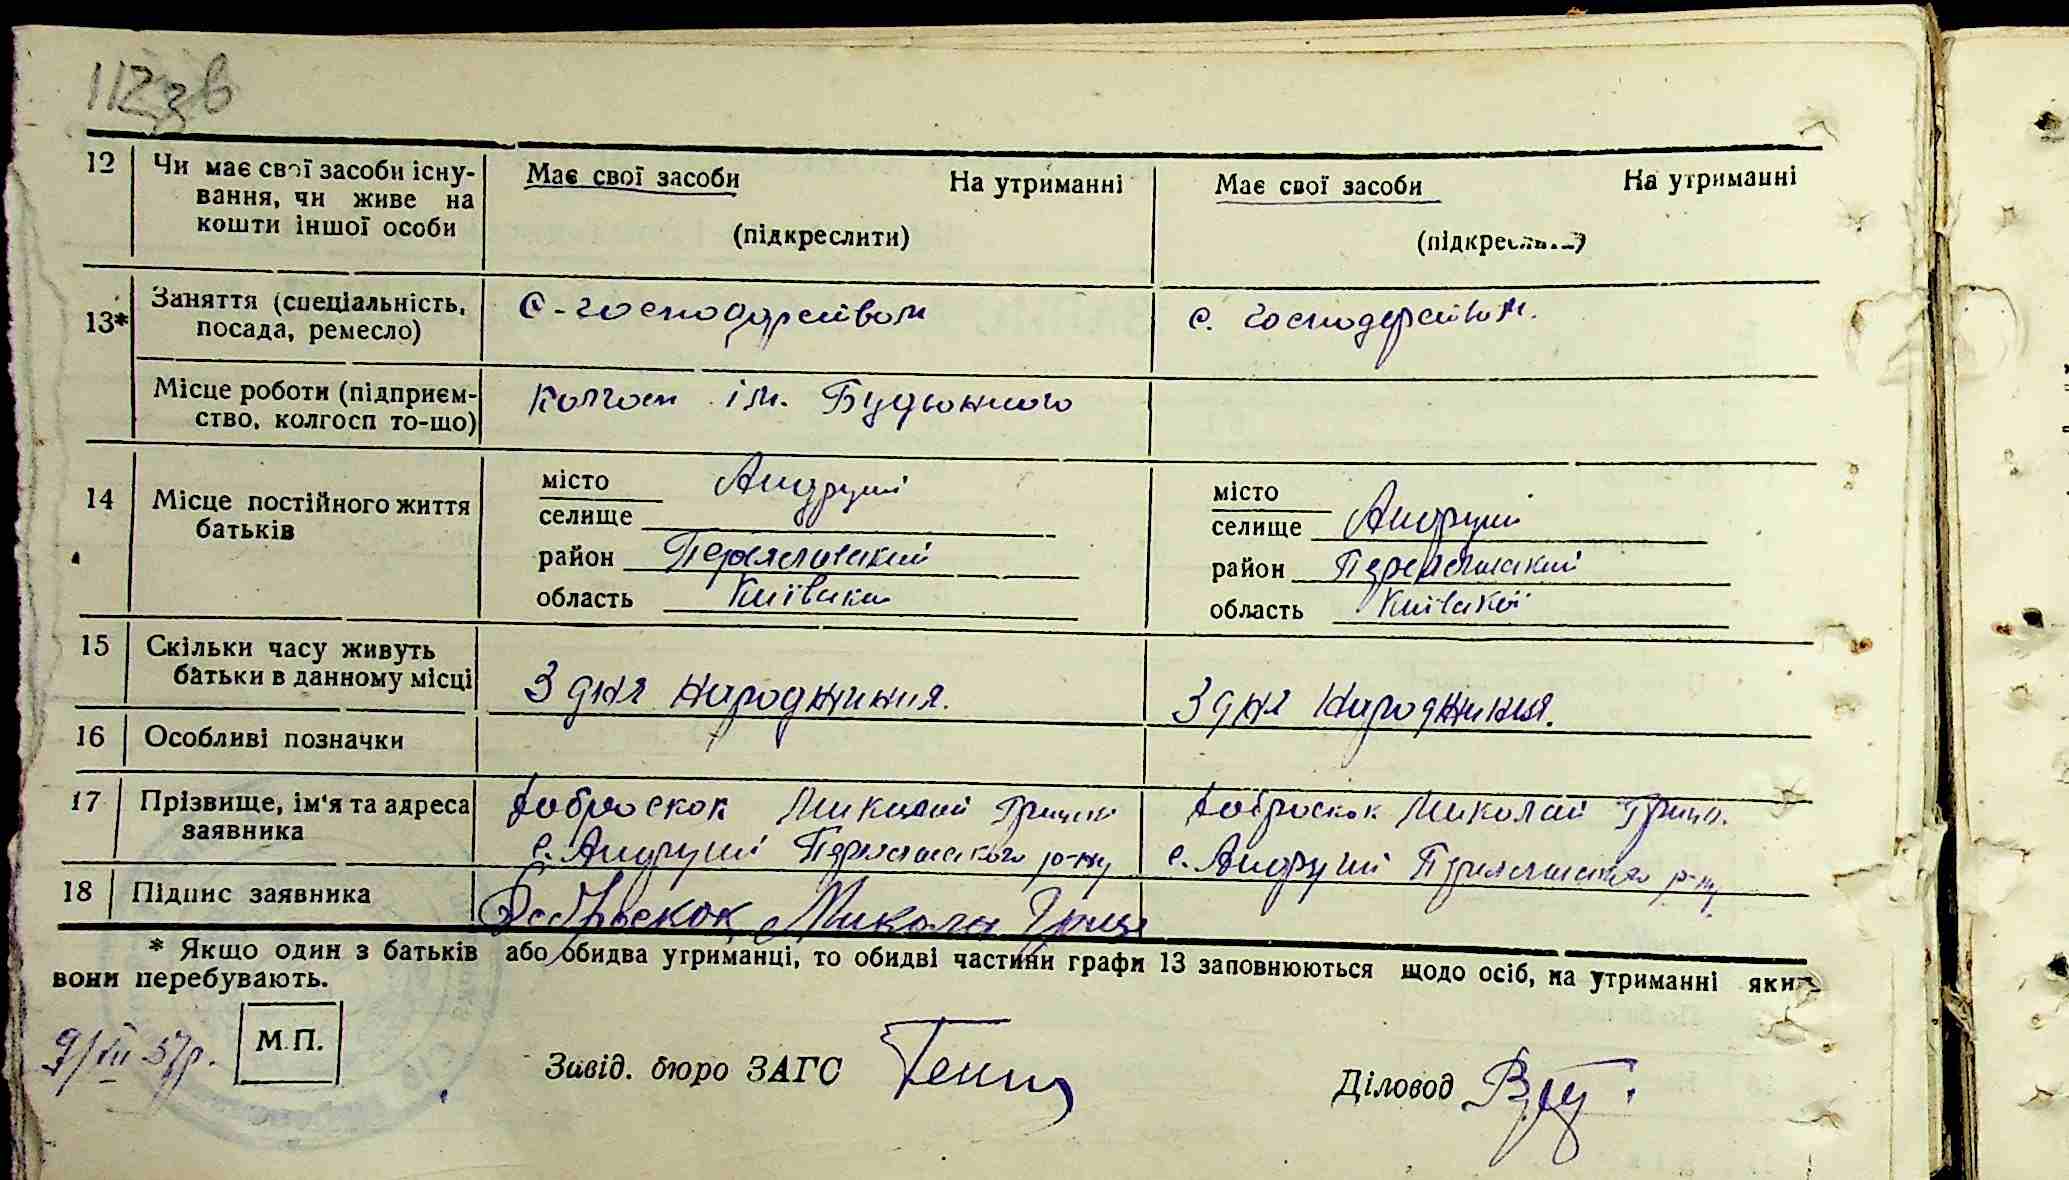 112зв
12 Чи має свої засоби існу- Має свої засоби На утриманні Має свої засоби На утриманні
вання, чи живе на
кошти іншої особи (підкреслити) (підкреслити)
13* Заняття (спеціальність, С-господарством с. господарством.
посада, ремесло)
Місце роботи (підприєм- Колгосп ім. Будьонного
ство, колгосп то-що)
14 Місце постійного життя місто Андруші місто
батьків селище селище Андруші
район Переяславський район Переяславський
область Київська область Київської
15 Скільки часу живуть
батьки в данному місці З дня народження. З дня народження.
16 Особливі позначки
17 Прізвище, ім'я та адреса Доброскок Миколай Доброскок Миколай Гриц.
заявника с. Андруші Переяславского р-ну с. Андруші Переяславского р-ну
18 Підпис заявника Доброскок Микола Гриц
* Якщо один з батьків або обидва утриманці, то обидві частини графи 13 заповнюються щодо осіб, на утриманні яких
вони перебувають.
9/XII 37р. М.П. Завід. бюро ЗАГС Діловод